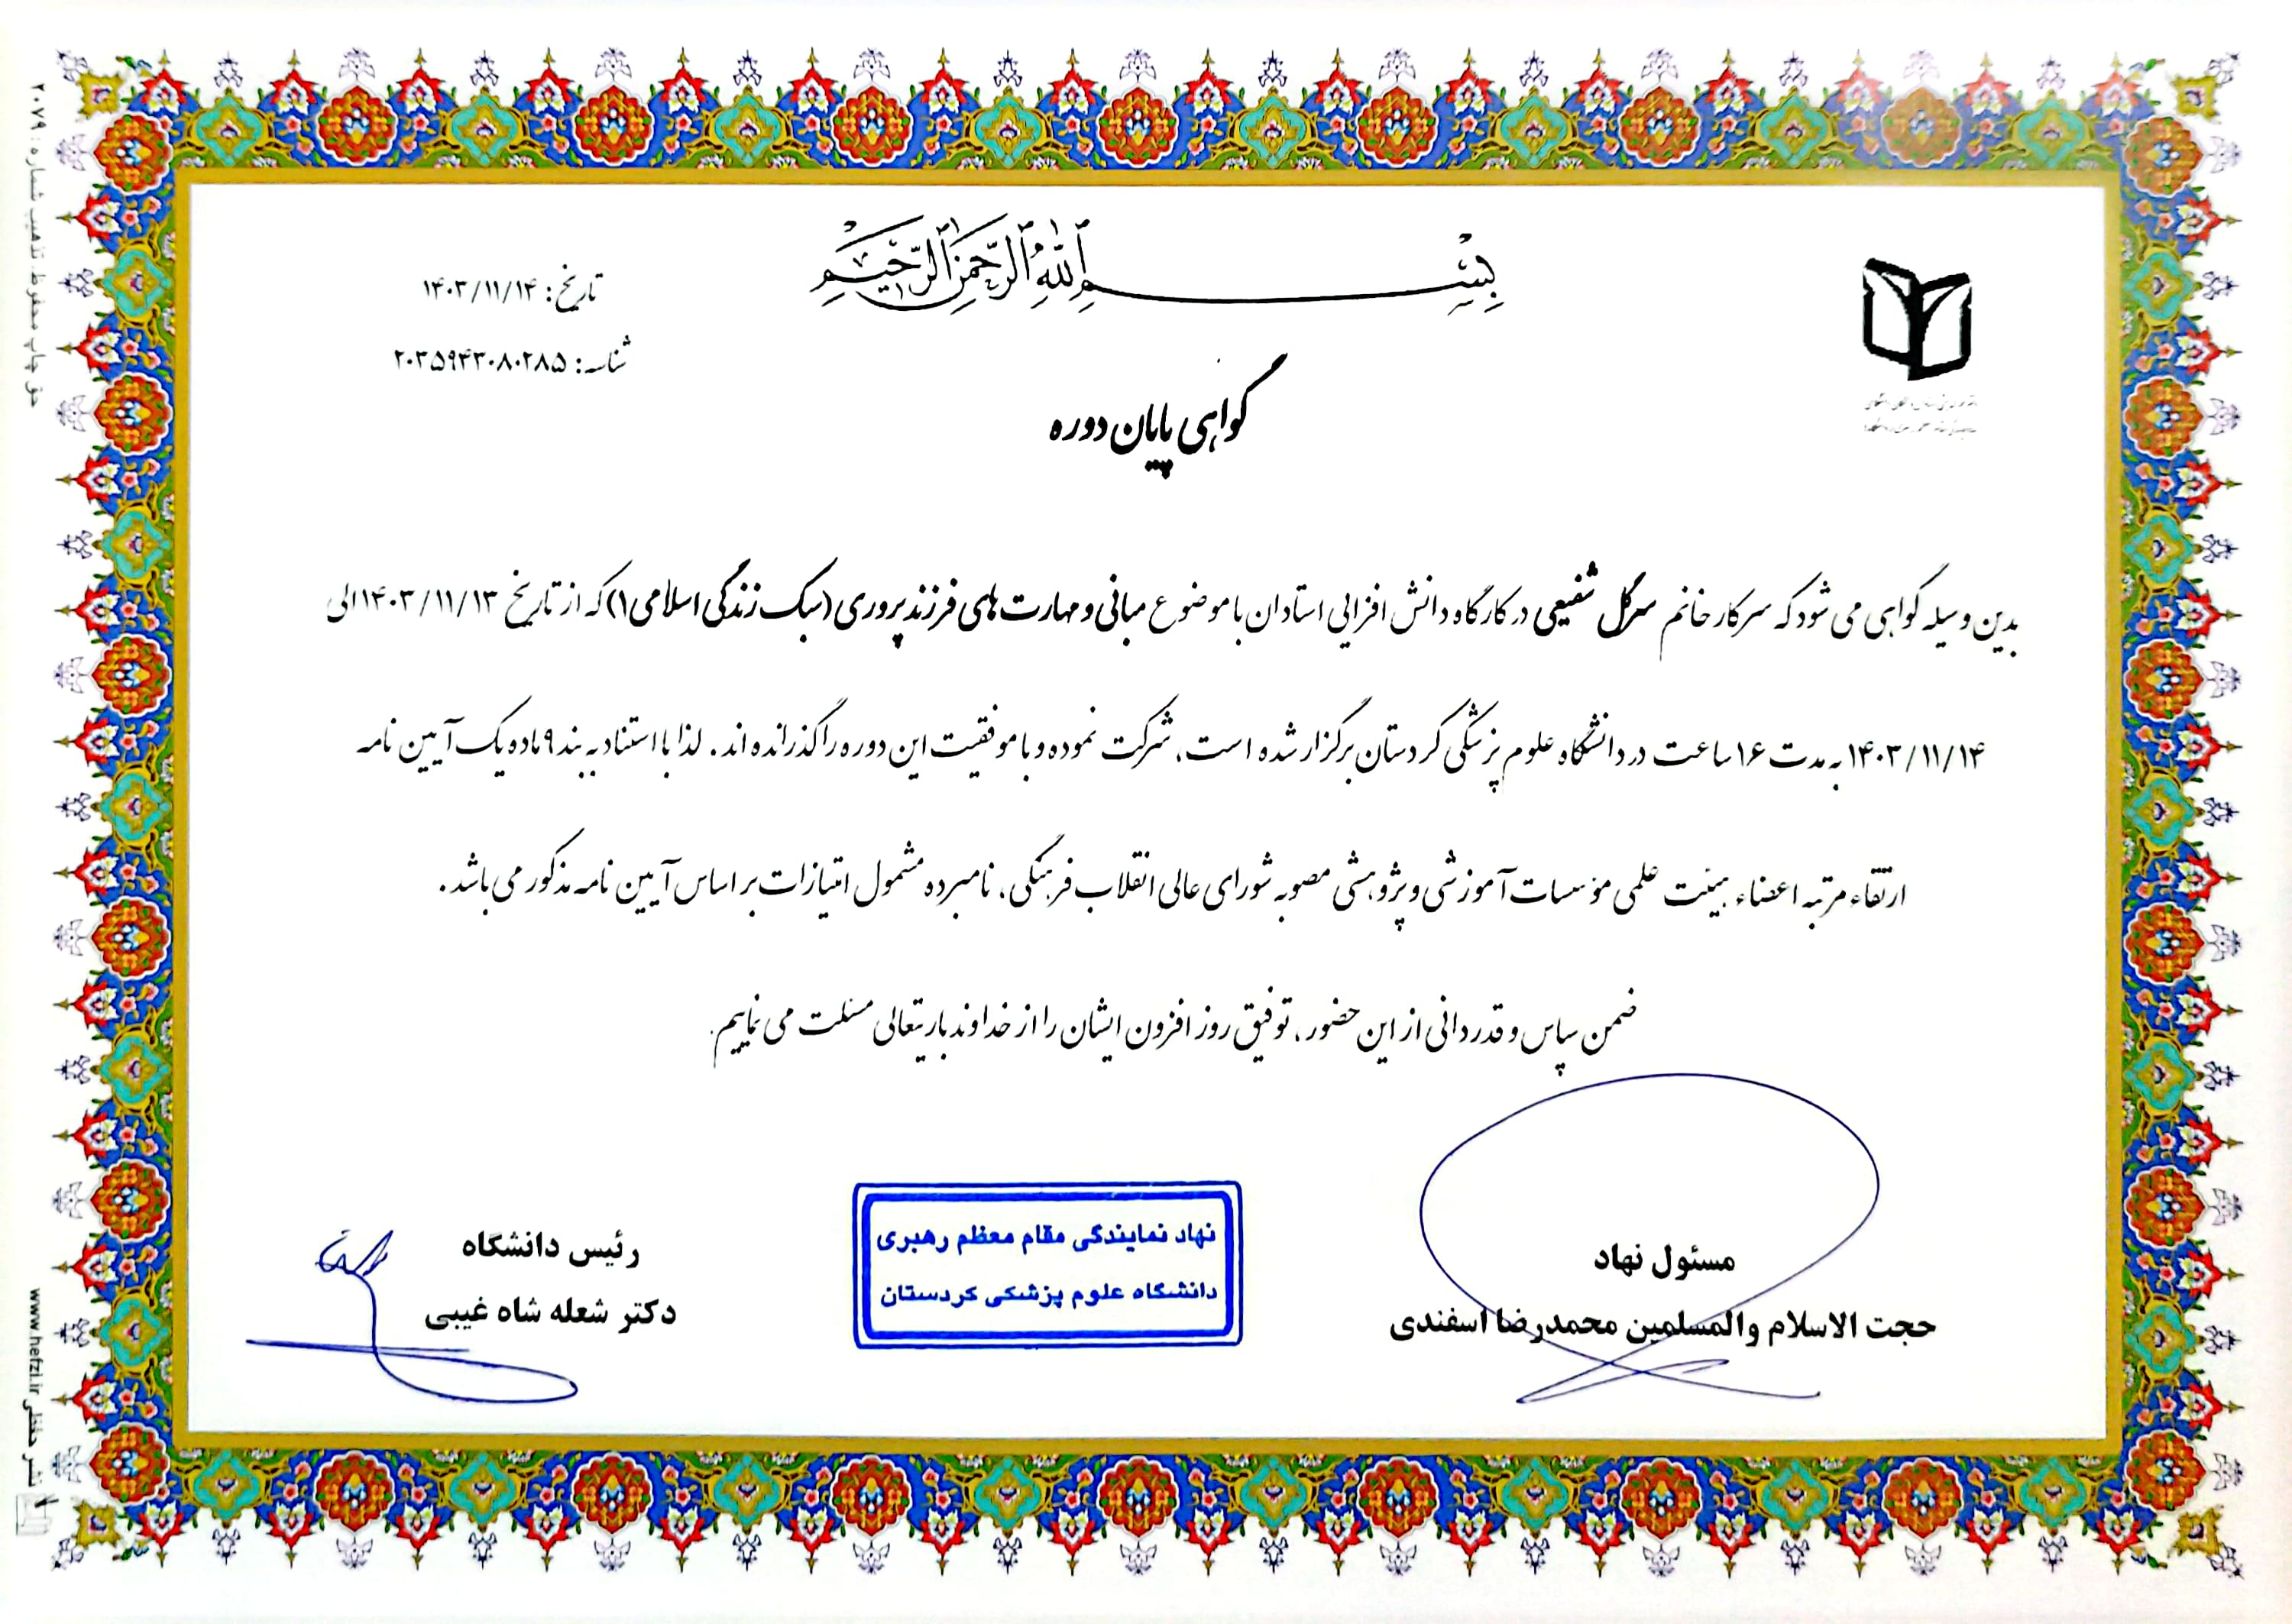 بسم الله الرحمن الرحیم
تاریخ: ۱۴۰۳/۱۱/۱۴
شناسه: ۲۰۳۵۹۴۳۰۸۰۲۸۵
گواهی پایان دوره
بدین وسیله گواهی می شود که سرکار خانم سرگل شفیعی در کارگاه دانش افزایی استادان با موضوع مبانی و مهارت های فرزند پروری (سبک زندگی اسلامی۱) که از تاریخ ۱۴۰۳/۱۱/۱۳ الی
۱۴۰۳/۱۱/۱۴ به مدت ۱۶ ساعت در دانشگاه علوم پزشکی کردستان برگزار شده است، شرکت نموده و با موفقیت این دوره را گذرانده اند. لذا با استناد به بند ۹ ماده یک آیین نامه
ارتقاء مرتبه اعضاء هیئت علمی مؤسسات آموزشی و پژوهشی مصوبه شورای عالی انقلاب فرهنگی، نامبرده مشمول امتیازات بر اساس آیین نامه مذکور می باشد.
ضمن سپاس و قدردانی از این حضور، توفیق روز افزون ایشان را از خداوند باریتعالی مسئلت می نماییم.
مسئول نهاد
حجت الاسلام والمسلمین محمدرضا اسفندی
نهاد نمایندگی مقام معظم رهبری
دانشگاه علوم پزشکی کردستان
رئیس دانشگاه
دکتر شعله شاه غیبی
حق چاپ محفوظ. تذهیب شماره ۲۰۷۹
نشر حفظی www.hefzi.ir